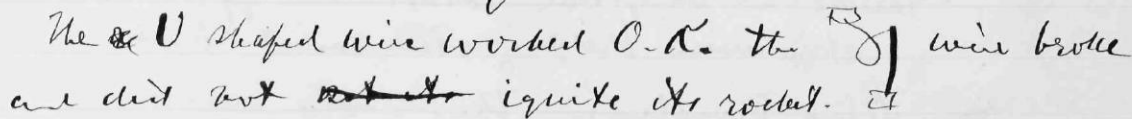 The U shaped wire worked O.K. the wire broke
and did not ignite its rocket.